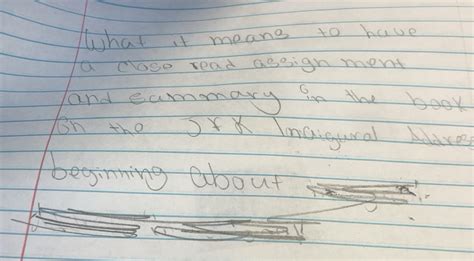 What it means to have
a close read assign ment
and summary in the book
On the JFK Inaigural Addres
beginning about